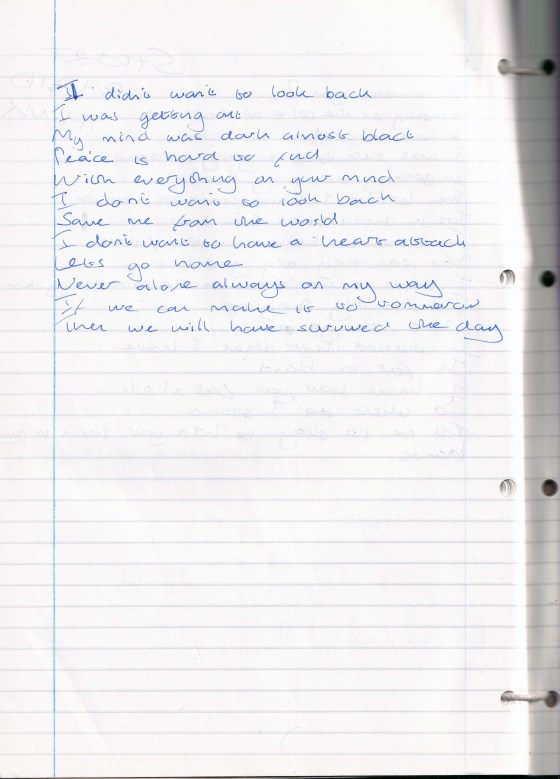 I didn't want to look back
I was getting out
My mind was dark almost black
Peace is hard to find
With everything on your mind
I don't want to look back
Save me from the world
I don't want to have a heart attack
Lets go home
Never alone always on my way
If we can make it to tomorrow
Then we will have survived the day